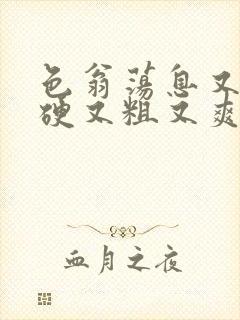 色翁荡息又
硬又粗又爽
血月之夜